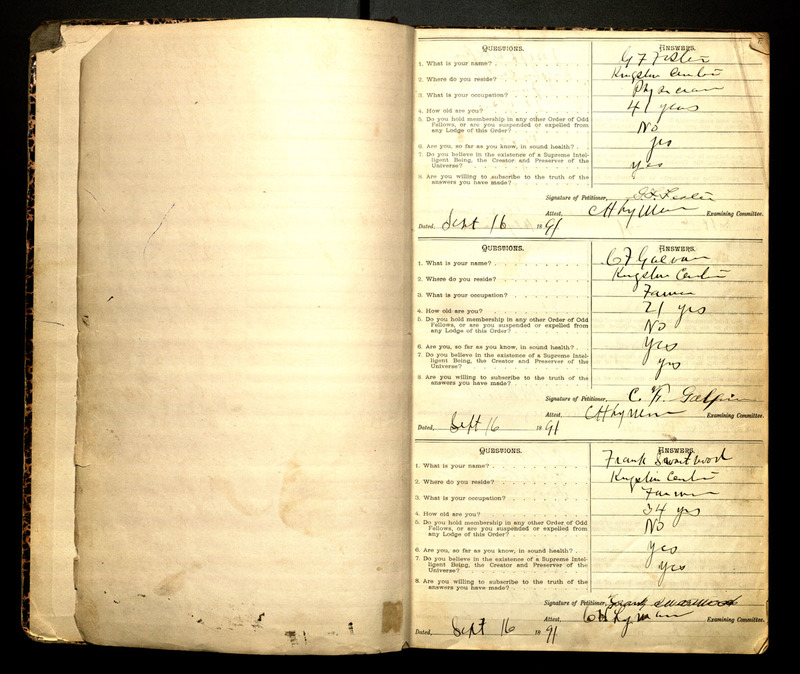 QUESTIONS. ANSWERS.
1. What is your name? G F Fister
2. Where do you reside? Kingston Center
3. What is your occupation? Physician
4. How old are you? 41 years
5. Do you hold membership in any other Order of Odd
Fellows, or are you suspended or expelled from
any Lodge of this Order? No
6. Are you, so far as you know, in sound health? yes
7. Do you believe in the existence of a Supreme Intel-
ligent Being, the Creator and Preserver of the
Universe? yes
8. Are you willing to subscribe to the truth of the
answers you have made?
Signature of Petitioner,
Attest, C H Lyman Examining Committee.
Dated, Sept 16 1891
QUESTIONS. ANSWERS.
1. What is your name? C F
2. Where do you reside? Kingston Center
3. What is your occupation? Farmer
4. How old are you? 21 yrs
5. Do you hold membership in any other Order of Odd
Fellows, or are you suspended or expelled from
any Lodge of this Order? No
6. Are you, so far as you know, in sound health? yes
7. Do you believe in the existence of a Supreme Intel-
ligent Being, the Creator and Preserver of the
Universe? yes
8. Are you willing to subscribe to the truth of the
answers you have made?
Signature of Petitioner, C. F. Galpin
Attest, C H Lyman Examining Committee.
Dated, Sept 16 1891
QUESTIONS. ANSWERS.
1. What is your name? Frank Swartwood
2. Where do you reside? Kingston Center
3. What is your occupation? Farmer
4. How old are you? 34 yrs
5. Do you hold membership in any other Order of Odd
Fellows, or are you suspended or expelled from
any Lodge of this Order? No
6. Are you, so far as you know, in sound health? yes
7. Do you believe in the existence of a Supreme Intel-
ligent Being, the Creator and Preserver of the
Universe? yes
8. Are you willing to subscribe to the truth of the
answers you have made?
Signature of Petitioner, Frank Swartwood
Attest, C H Lyman Examining Committee.
Dated, Sept 16 1891